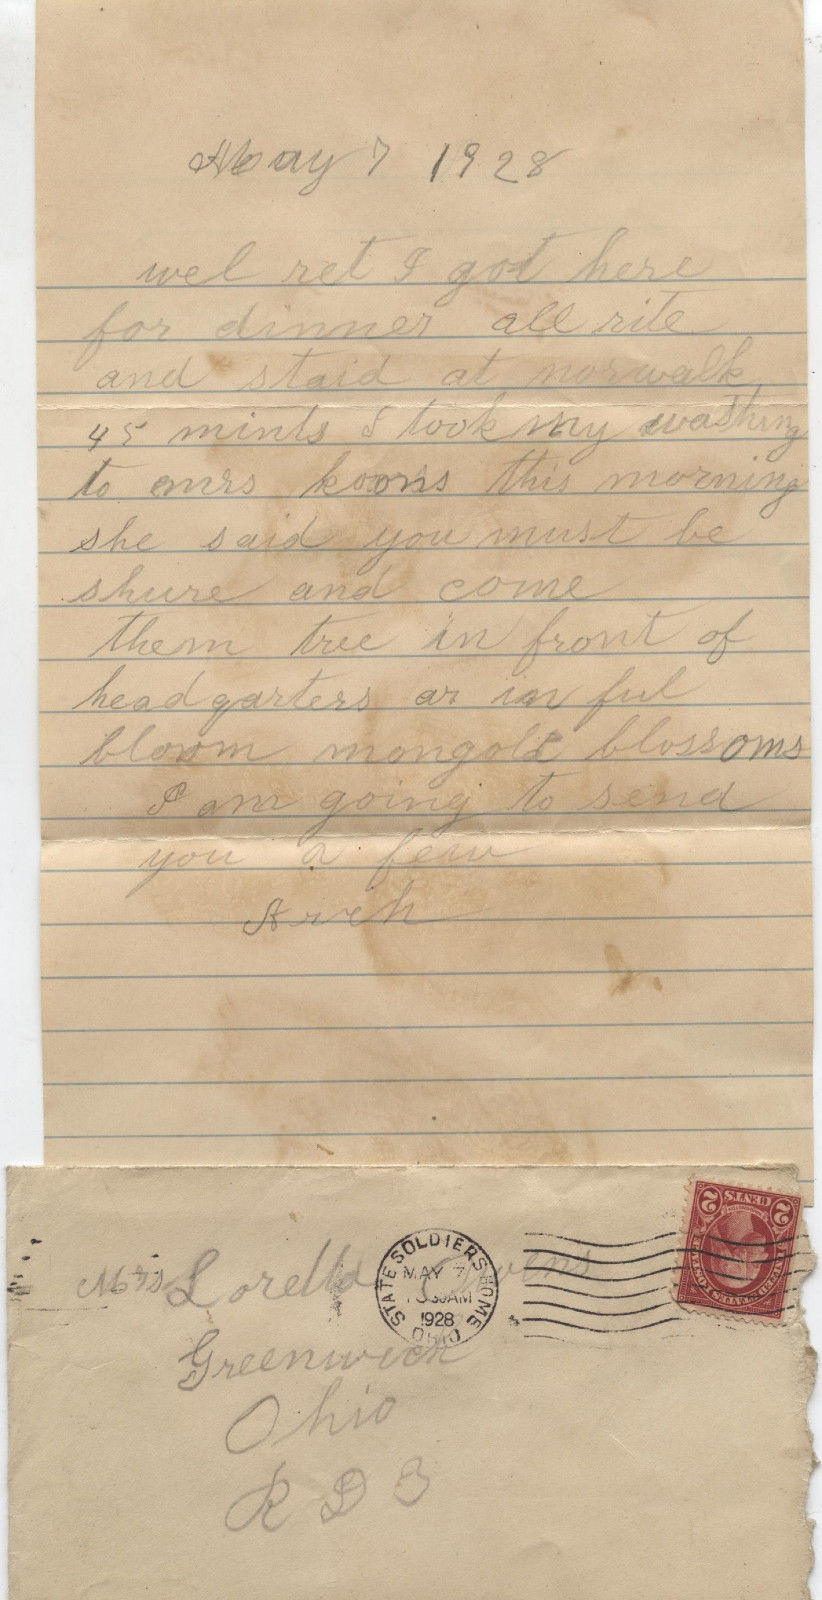 May 7 1928
wel ret I got here
for dinner all rite
and staid at norwalk
45 mints I took my washing
to mrs koons this morning
she said you must be
shure and come
them tree in front of
headqarters ar in ful
bloom mongold blossoms
I am going to send
you a few
Arch
STATE SOLDIERS HOME
OHIO
MAY 7
AM
1928
2 CENTS 2
Mrs Loretta Owens
Greenwich
Ohio
R D 3